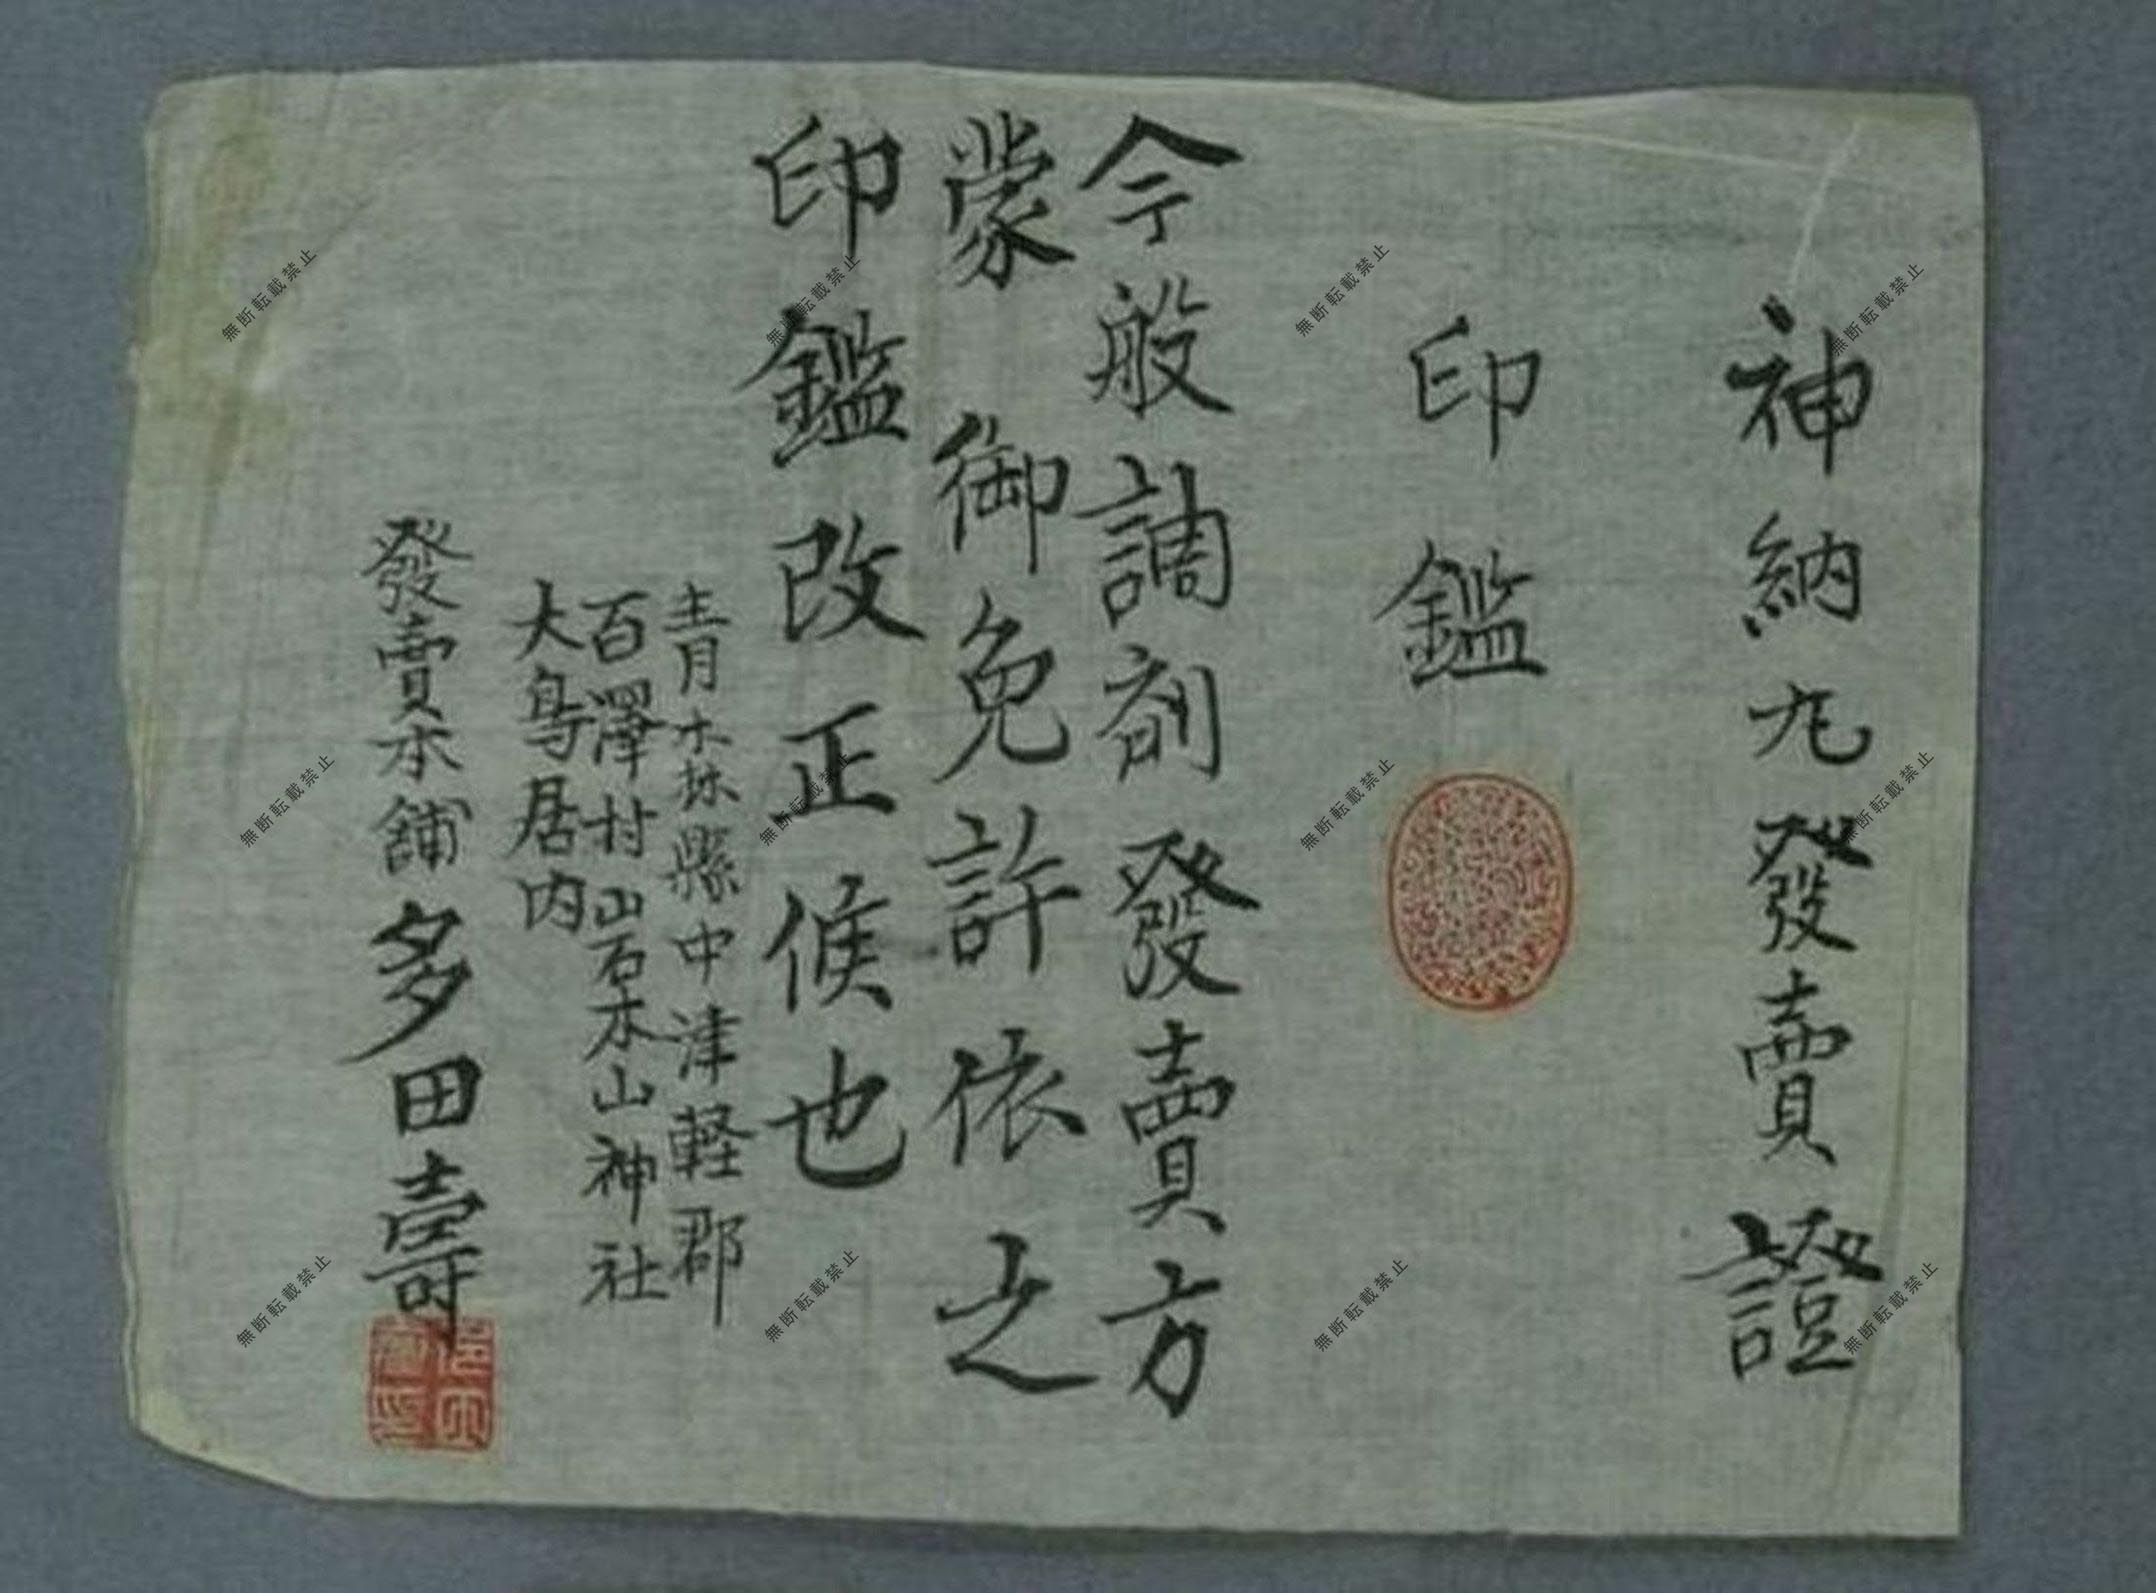 神納丸發賣證
印鑑
今般調剤發賣方
蒙 御免許依之
印鑑改正候也
青森縣中津軽郡
百澤村岩木山神社
大鳥居内
發賣本舗 多田壽
無断転載禁止
無断転載禁止
無断転載禁止
無断転載禁止
無断転載禁止
無断転載禁止
無断転載禁止
無断転載禁止
無断転載禁止
無断転載禁止
無断転載禁止
無断転載禁止